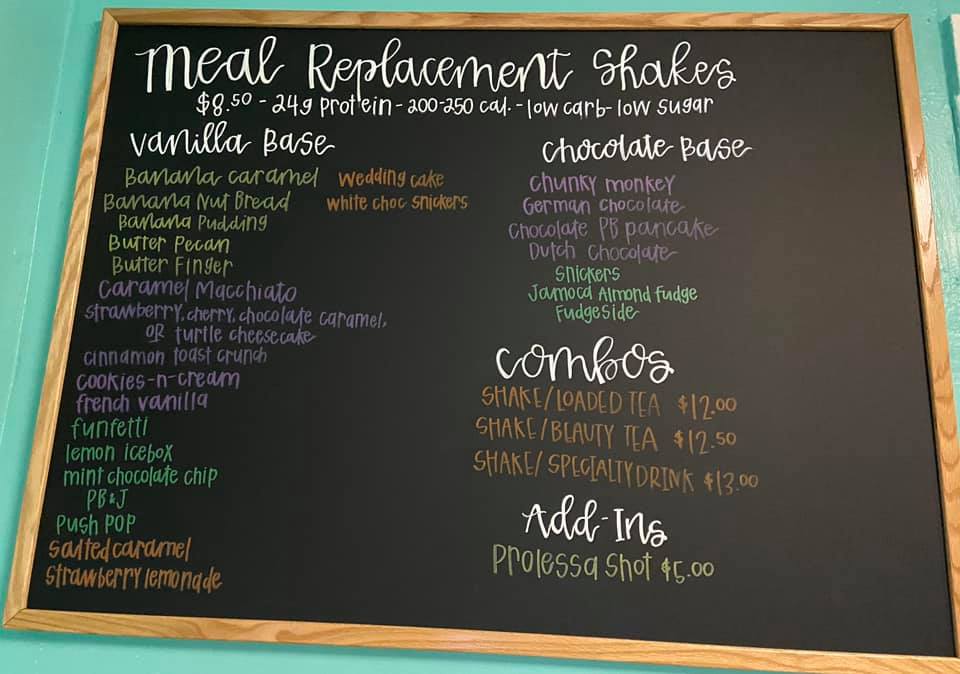 Meal Replacement Shakes
$8.50 - 24g protein - 200-250 cal. - low carb - low sugar
Vanilla Base
Banana caramel
Banana Nut Bread
Banana Pudding
Butter Pecan
Butter Finger
Caramel Macchiato
strawberry, cherry, chocolate caramel,
OR turtle cheesecake
cinnamon toast crunch
cookies-n-cream
french vanilla
funfetti
lemon icebox
mint chocolate chip
PB&J
Push POP
Salted caramel
Strawberry lemonade
Wedding cake
white choc snickers
Chocolate Base
Chunky monkey
German Chocolate
Chocolate PB pancake
Dutch Chocolate
Snickers
Jamoca Almond fudge
Fudgeside
Combos
SHAKE/LOADED TEA $12.00
SHAKE/BEAUTY TEA $12.50
SHAKE/SPECIALTY DRINK $13.00
Add-Ins
Prolessa Shot $5.00